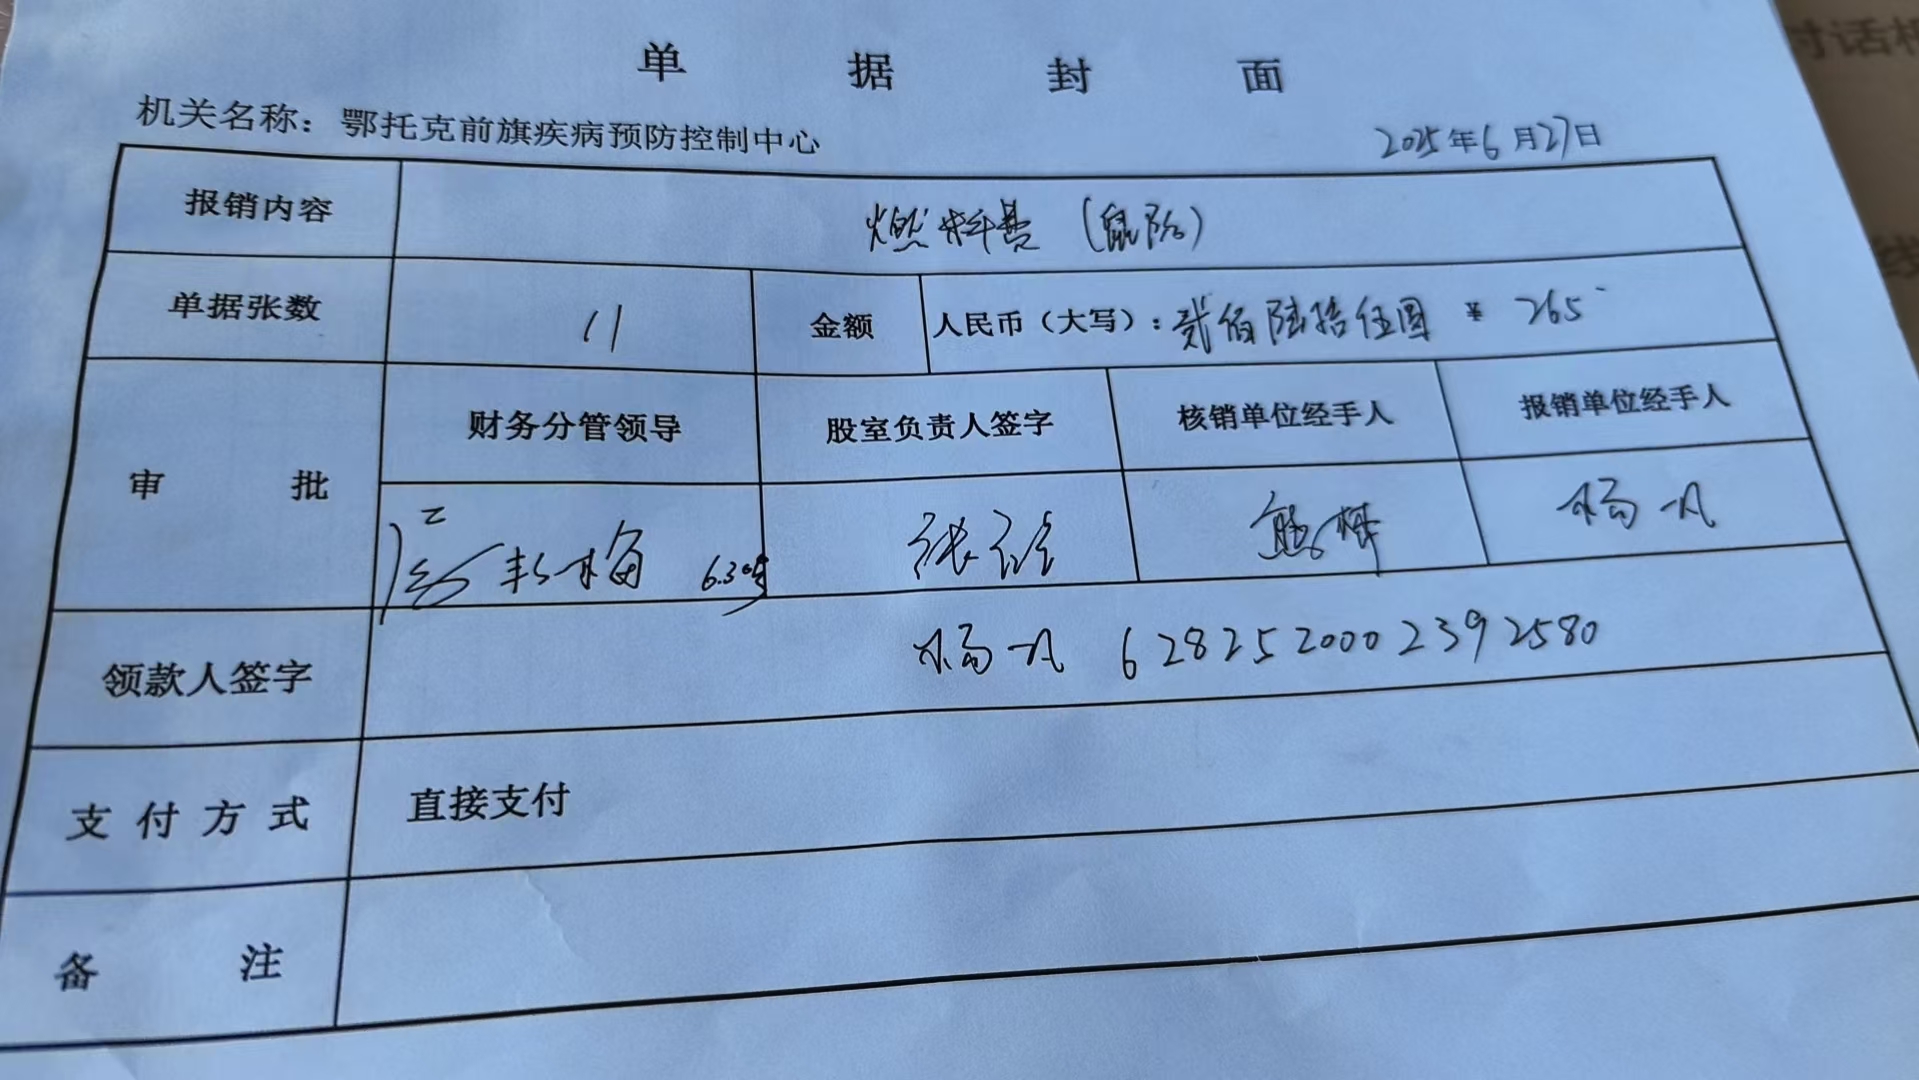 单据封面
机关名称：鄂托克前旗疾病预防控制中心 2025年6月27日
报销内容 燃料费（鼠防）
单据张数 11 金额 人民币（大写）：贰佰陆拾伍圆 ¥ 265
审批 财务分管领导 股室负责人签字 核销单位经手人 报销单位经手人
梅 6.30 张 熊 杨凡
领款人签字 杨凡 6282520002392580
支付方式 直接支付
备注
对话框
线